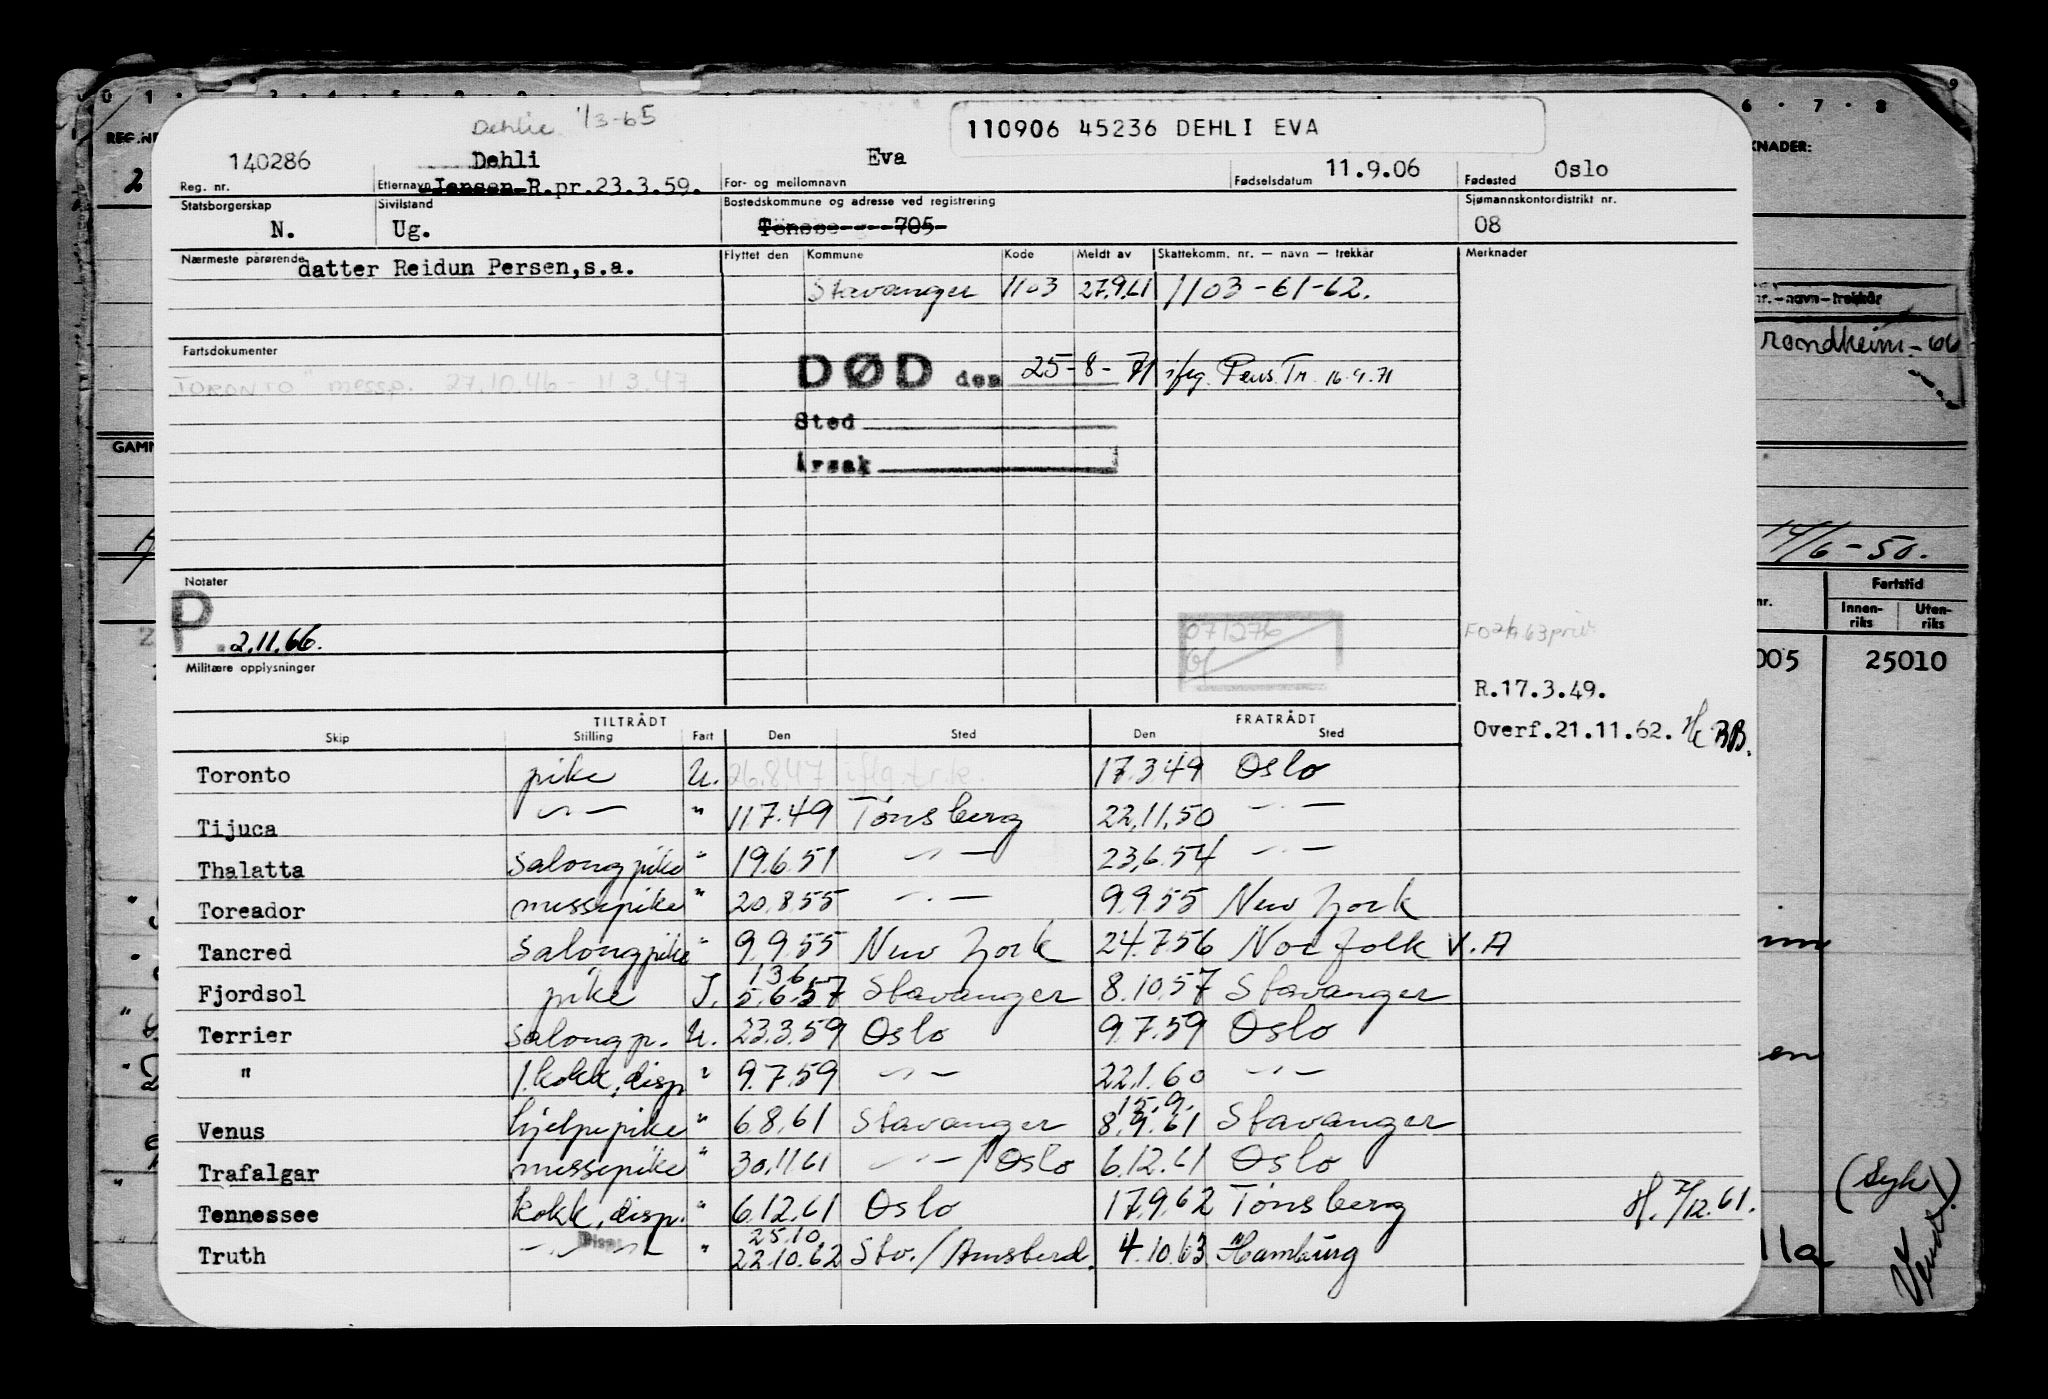 Dehlie 1/3-65
110906 45236 DEHLI EVA
140286 Dehli Eva 11.9.06 Oslo
Reg. nr. Etternavn Jensen R.pr.23.3.59. For- og mellomnavn Fødselsdatum Fødested
Statsborgerskap Sivilstand Bostedskommune og adresse ved registrering Sjømannskontordistrikt nr.
N. Ug. 705 08
Nærmeste pårørende datter Reidun Persen,s.a. Flyttet den Kommune Kode Meldt av Skattekomm. nr. — navn — trekkår Merknader
Stavanger 1103 27.9.61 1103-61-62.
Fartsdokumenter
DØD den 25-8-71 iføg. Pens.Tr. 16.9.71
TORONTO" messp. 27.10.46 - 11.3.47
Sted
Årsak
Notater
P 2.11.66.
07/276
Militære opplysninger
R.17.3.49.
Overf.21.11.62. BB.
TILTRÅDT FRATRÅDT
Skip Stilling Fart Den Sted Den Sted
Toronto pike U. 26.8.47 iflg. tr.k. 17.3.49 Oslo
Tijuca — " — " 11.7.49 Tønsberg 22.11.50 — " —
Thalatta Salongpike " 19.6.51 — " — 23.6.54 — " —
Toreador messepike " 20.8.55 — " — 9.9.55 New York
Tancred Salongpike " 9.9.55 New York 24.7.56 Norfolk V.A
13.6
Fjordsol pike I. 5.6.57 Stavanger 8.10.57 Stavanger
Terrier Salongp. U. 23.3.59 Oslo 9.7.59 Oslo
" 1.kokk,disp " 9.7.59 — " — 22.1.60 — " —
15.9.
Venus hjelpepike " 6.8.61 Stavanger 8.9.61 Stavanger
Trafalgar messepike " 30.11.61 — " — / Oslo 6.12.61 Oslo
Tennessee kokk,disp. " 6.12.61 Oslo 17.9.62 Tønsberg H. 7/12.61.
25.10.
Truth — " — Disp. — " — " 22.10.62 Stv./Amsterd. 4.10.63 Hamburg
REG.NR
2
KNADER:
nr.—navn—trekkår
rondheim-66
14/6-50.
Fartstid
nr. Innen-riks Uten-riks
005 25010
(Syk)